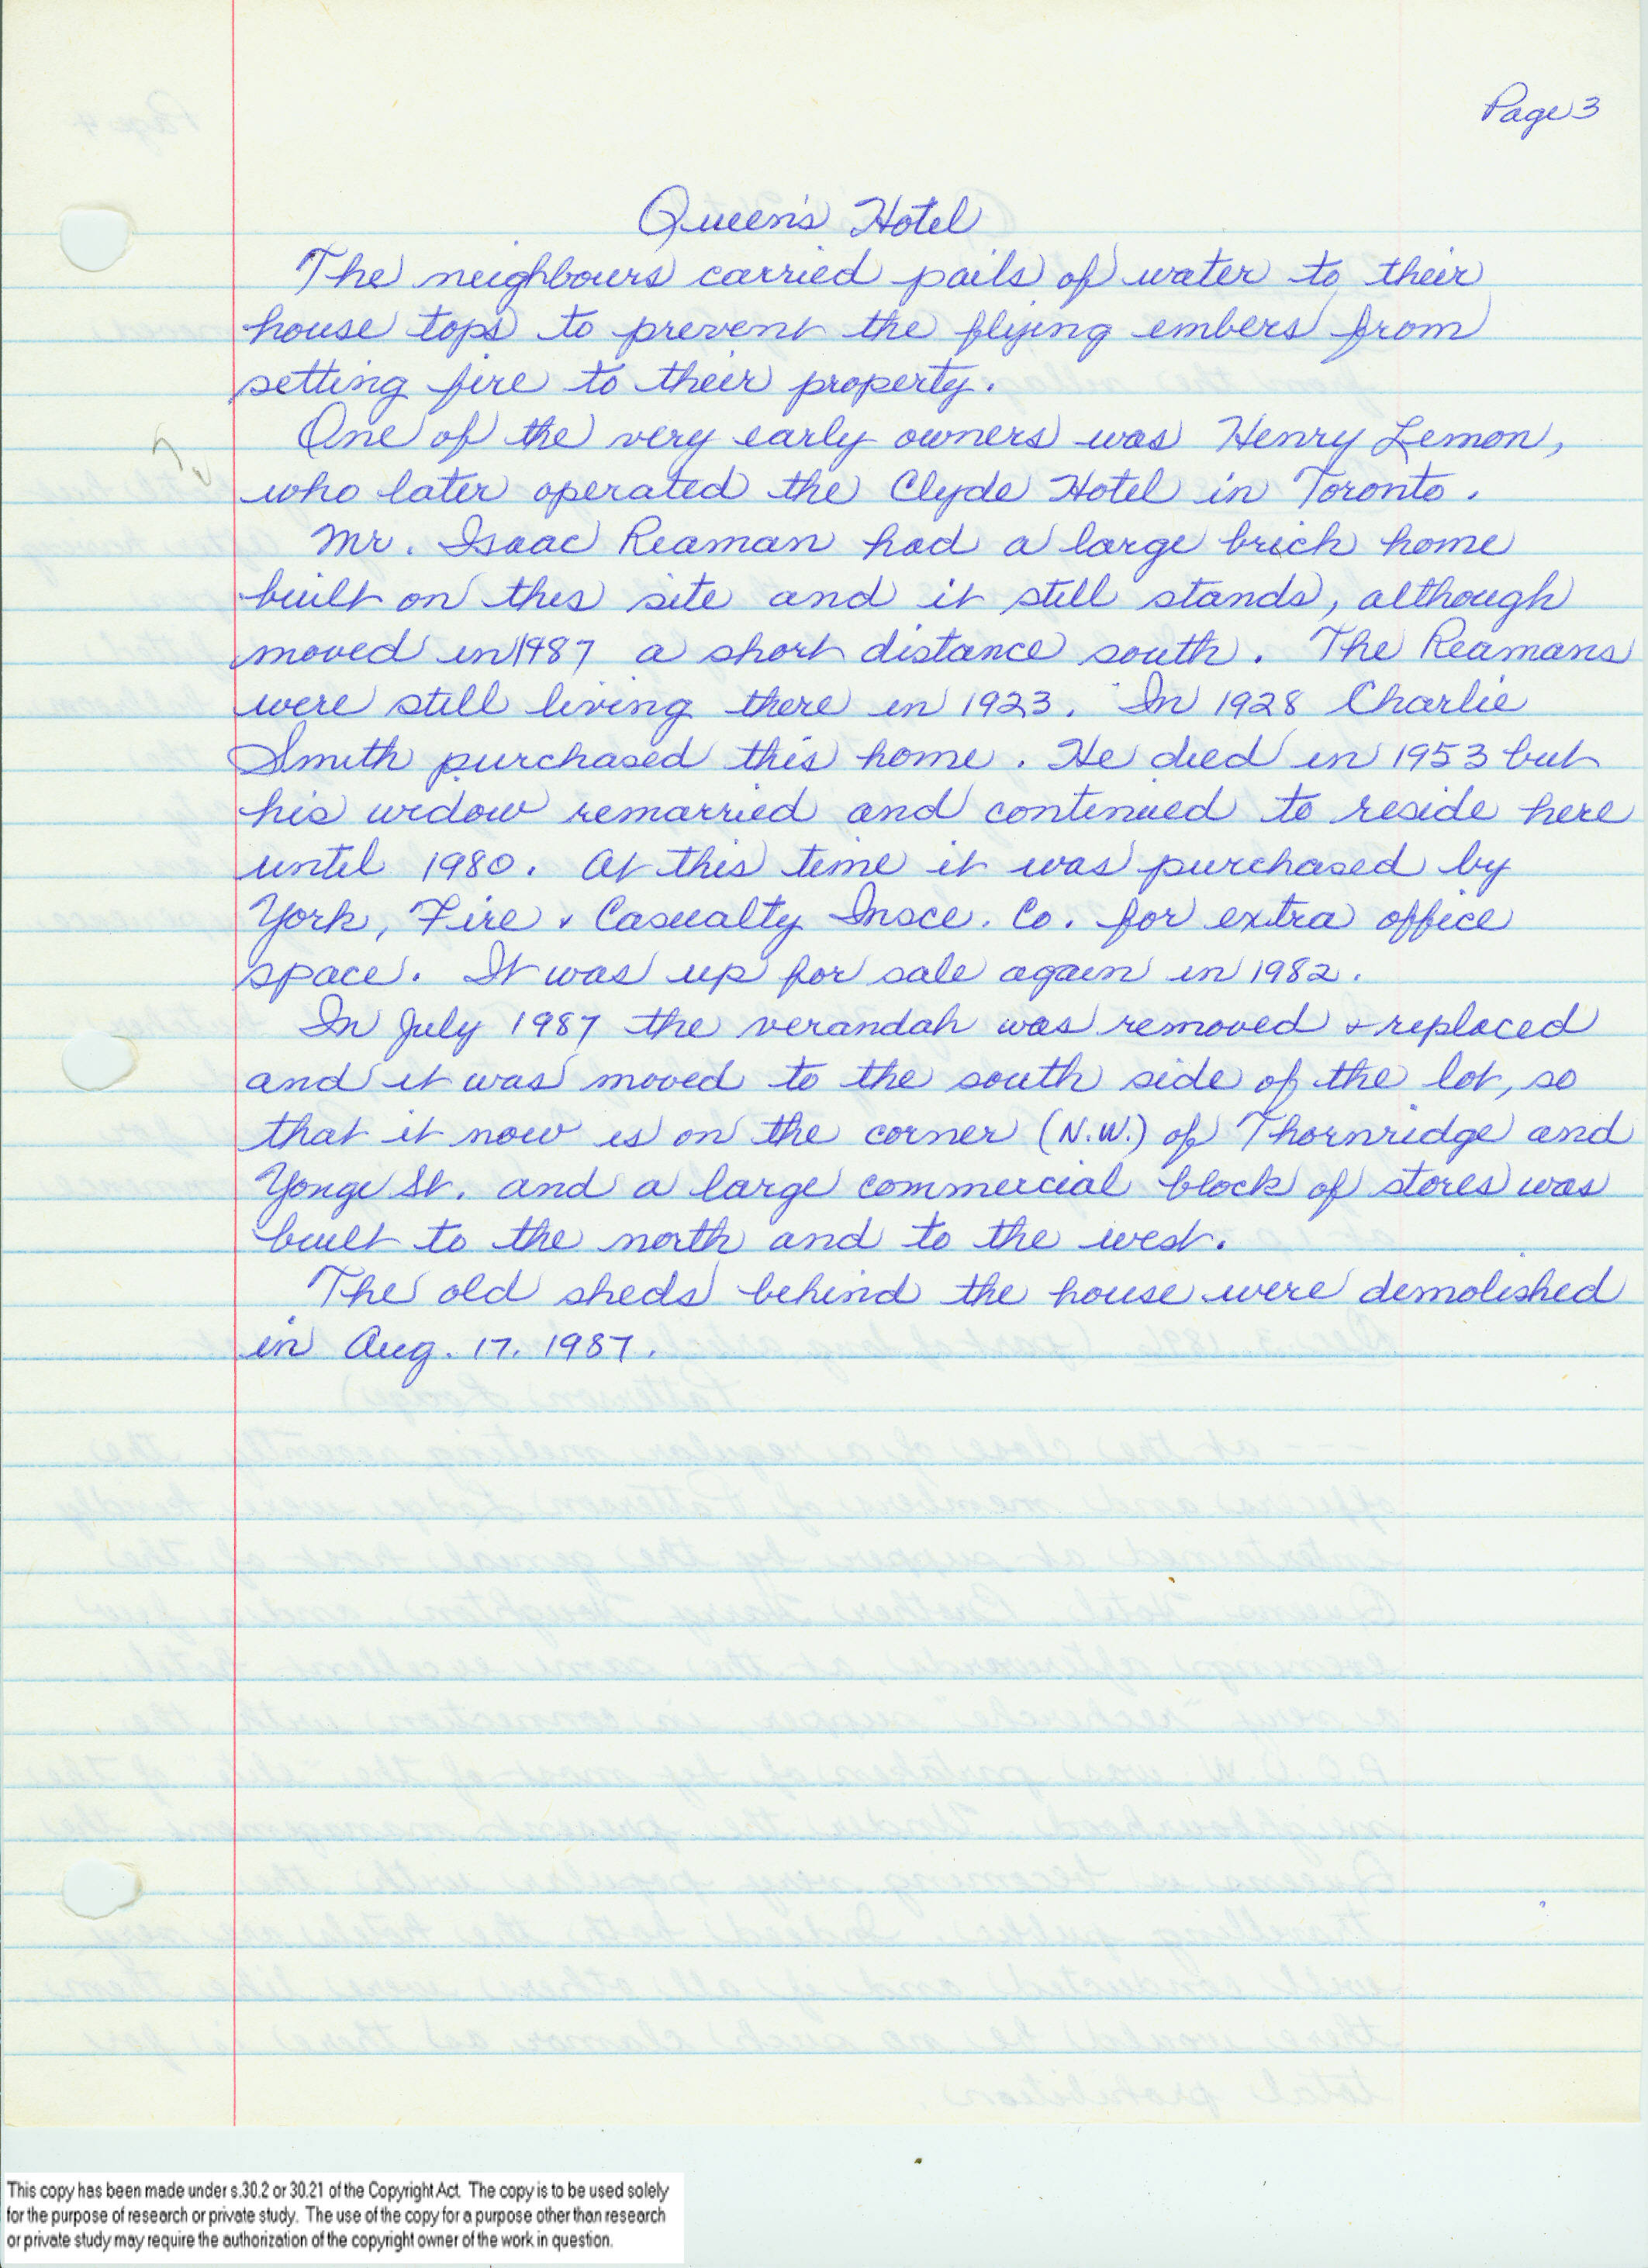 Page 3
Queen's Hotel
The neighbours carried pails of water to their
house tops to prevent the flying embers from
setting fire to their property.
One of the very early owners was Henry Lemon,
who later operated the Clyde Hotel in Toronto.
Mr. Isaac Reaman had a large brick home
built on this site and it still stands, although
moved in 1987 a short distance south. The Reamans
were still living there in 1923. In 1928 Charlie
Smith purchased this home. He died in 1953 but
his widow remarried and continued to reside here
until 1980. At this time it was purchased by
York, Fire & Casualty Insce. Co. for extra office
space. It was up for sale again in 1982.
In July 1987 the verandah was removed & replaced
and it was moved to the south side of the lot, so
that it now is on the corner (N.W.) of Thornridge and
Yonge St. and a large commercial block of stores was
built to the north and to the west.
The old sheds behind the house were demolished
in Aug. 17. 1987.
This copy has been made under s.30.2 or 30.21 of the Copyright Act. The copy is to be used solely
for the purpose of research or private study. The use of the copy for a purpose other than research
or private study may require the authorization of the copyright owner of the work in question.